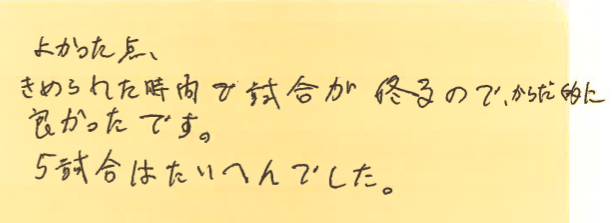 よかった点、
きめられた時間で試合が終るので、からだ的に
良かったです。
5試合はたいへんでした。